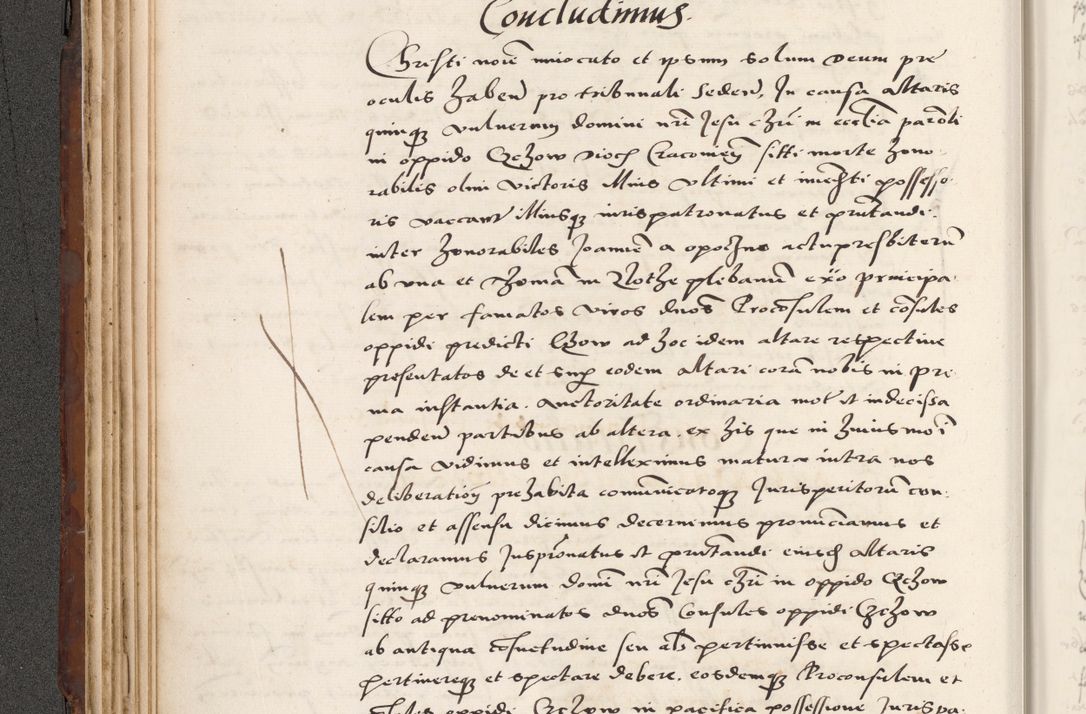 Concludimus.
Christi noīe invocato et ipsum solum deum pre
oculis haben̄ pro tribunali Seden̄, In causa altaris
quinqʒ vulnerum domini nrī Jesu chrī in ecclīa parōli
in oppido Czchow dioc̄ Cracovien̄ sitti morte hono
rabilis olm̄ victoris illius ultimi et imedt̄i possesso
ris vaccant̄ illiusqʒ iurispatronatus et prn̄tandi.
inter honorabiles Joannē a opoczno actu presbiterū
ab una et Thomā in plebanū ex̄o principa
lem per famatos viros dnōs Proconsulem et cōsules
oppidi predicti Czchow ad hoc idem altare respective
presentatos de et sup̄ eodem altari corā nobis in pri
ma instantia. auctoritate ordinaria mot̄ et indecissa
penden̄ partibus ab altera. ex his que in huiusmōi
causa vidimus et intelleximus matura intra nos
deliberation̄ prehabita comūnicatoqʒ Jurisperitorū con
silio et assensu dicimus decernimus pronūciamus et
declaramus Juspr̄onatus et prn̄tandi eiusd̄ altaris
quinqʒ vulnerum domī nrī Jesu chrī in oppido Czchow
sitto ad prenominatos dnōs Consules oppidi Czchow
ab antiqua cōsuetudine seu al̄s pertinuisse et spectasse
pertinereqʒ et spectare debere. eosdemqʒ Proconsulem et
oppidi Czchow in pacifica possessione Jurispa